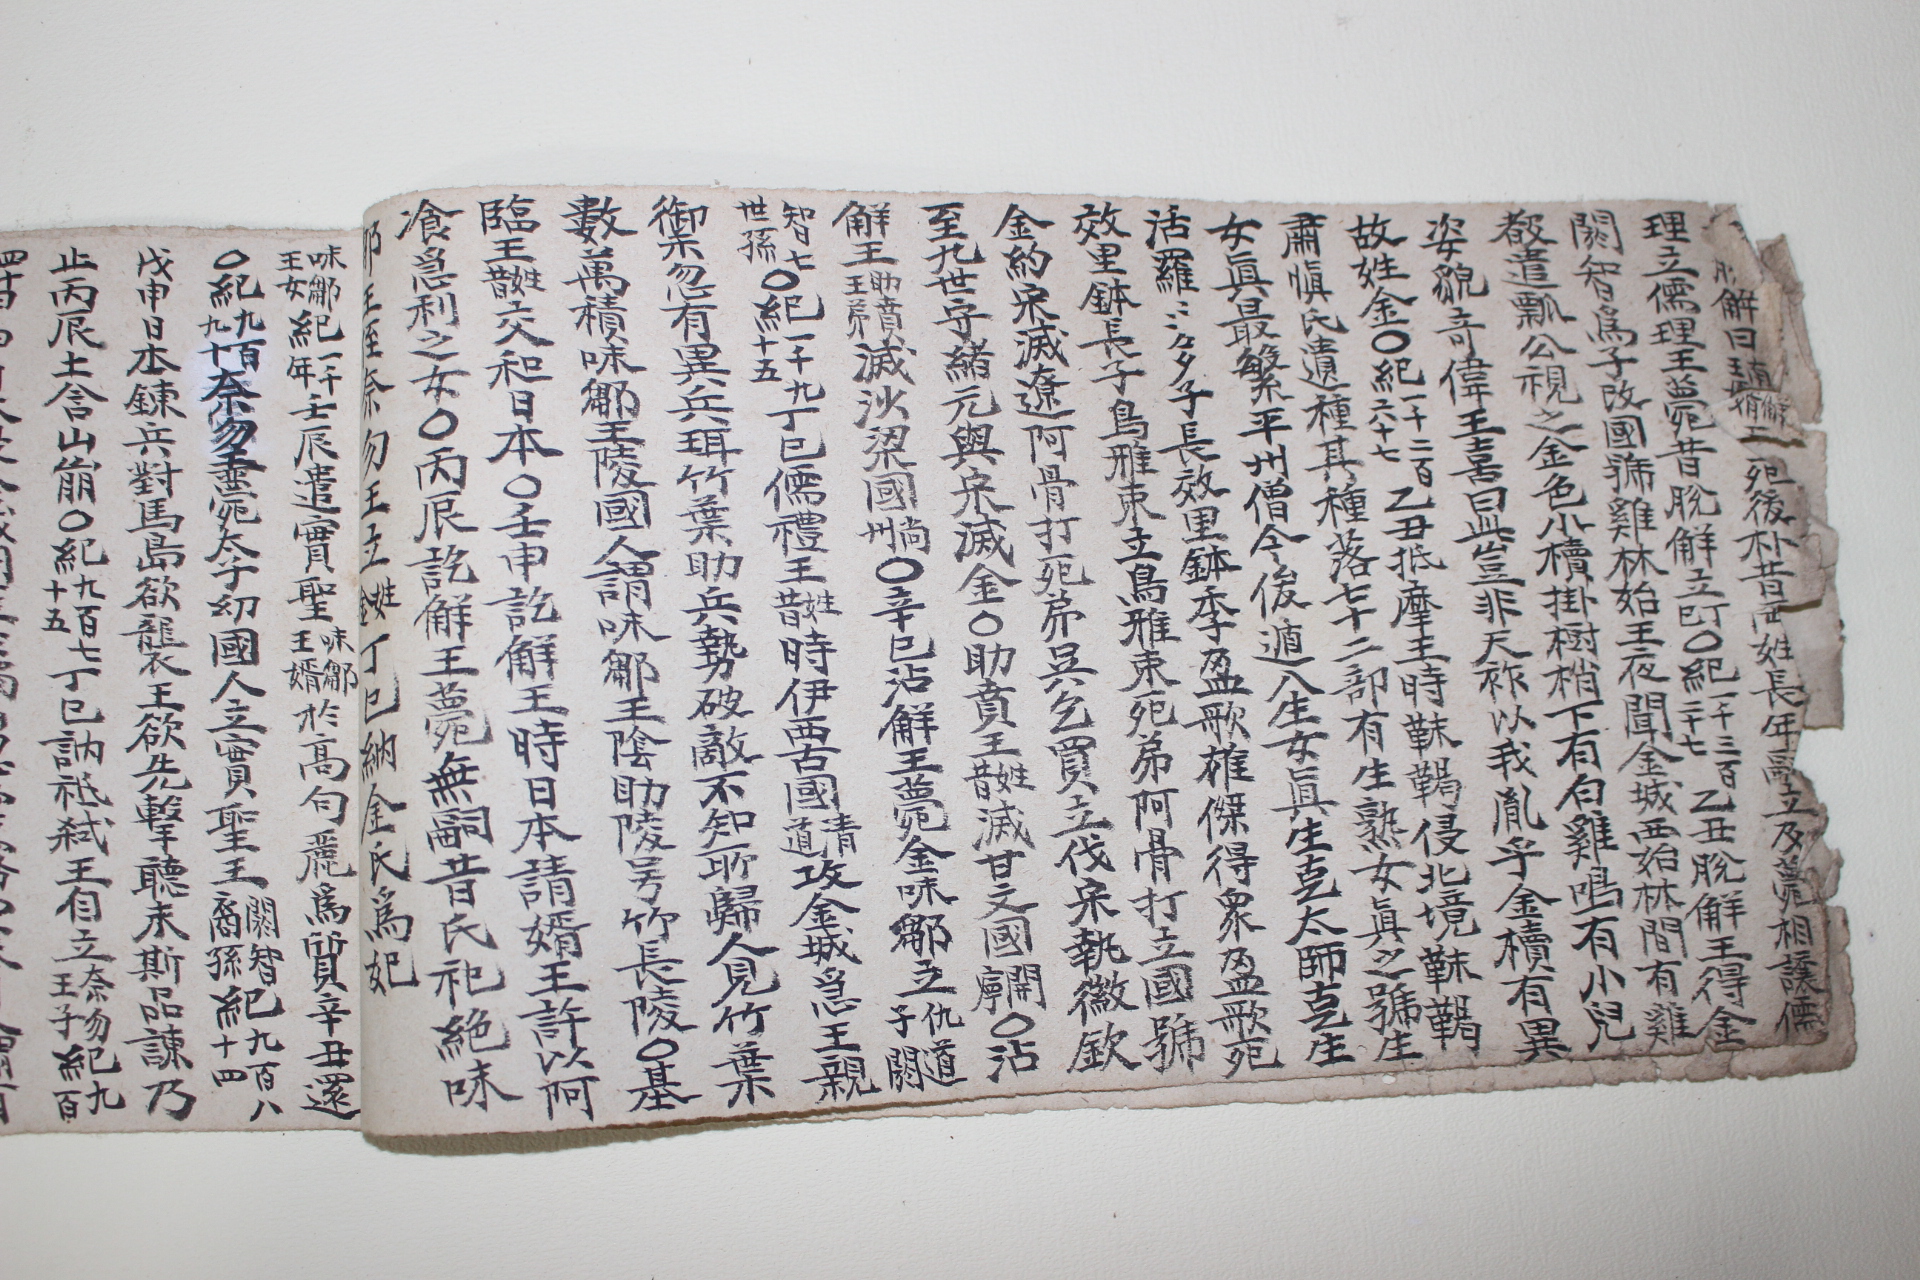 脫解曰 死後朴昔兩姓長年嗣立及薨相讓儒
理立儒理王薨昔脫解立丁巳〇紀一千三百二十七乙丑脫解王得金
閼智爲子改國號雞林始王夜聞金城西始林間有雞
聲遣瓢公視之金色小櫝掛樹梢下有白雞鳴有小兒
姿貌奇偉王喜曰此豈非天祚以我胤乎金櫝有異
故姓金〇紀一千二百六十七乙丑抵摩王時靺鞨侵北境靺鞨
肅愼氏遺種其種落七十二部有生熟女眞之號生
女眞最繁平州僧今俊遁入生女眞生克太師克生
活羅活羅多子長效里鉢季盈歌雄傑得衆盈歌死
效里鉢長子烏雅束立烏雅束死弟阿骨打立國號
金約宋滅遼阿骨打死弟吳乞買立伐宋執徽欽
至九世守緒元與宋滅金〇助賁王昔姓滅甘文國開寧〇沾
解王助賁王弟滅沙梁國尙州〇辛巳沾解王薨金味鄒立仇道子閼
智七世孫〇紀一千九十五丁巳儒禮王昔姓時伊西古國淸道攻金城急王親
禦忽有異兵珥竹葉助兵勢破敵不知所歸人見竹葉
數萬積味鄒王陵國人謂味鄒王陰助陵号竹長陵〇基
臨王昔姓交和日本〇壬申訖解王時日本請婿王許以阿
飡急利之女〇丙辰訖解王薨無嗣昔氏祀絶味
鄒王姪奈勿王立金姓丁巳納金氏爲妃
味鄒王女紀一千年壬辰遣實聖味鄒王婿於高句麗爲質辛丑還
〇紀九百九十奈勿王薨太子幼國人立實聖王閼智裔孫紀九百八十四
戊申日本鍊兵對馬島欲襲王欲先擊聽未斯品諫乃
止丙辰土含山崩〇紀九百七十五丁巳訥祗弑王自立奈勿王子紀九百